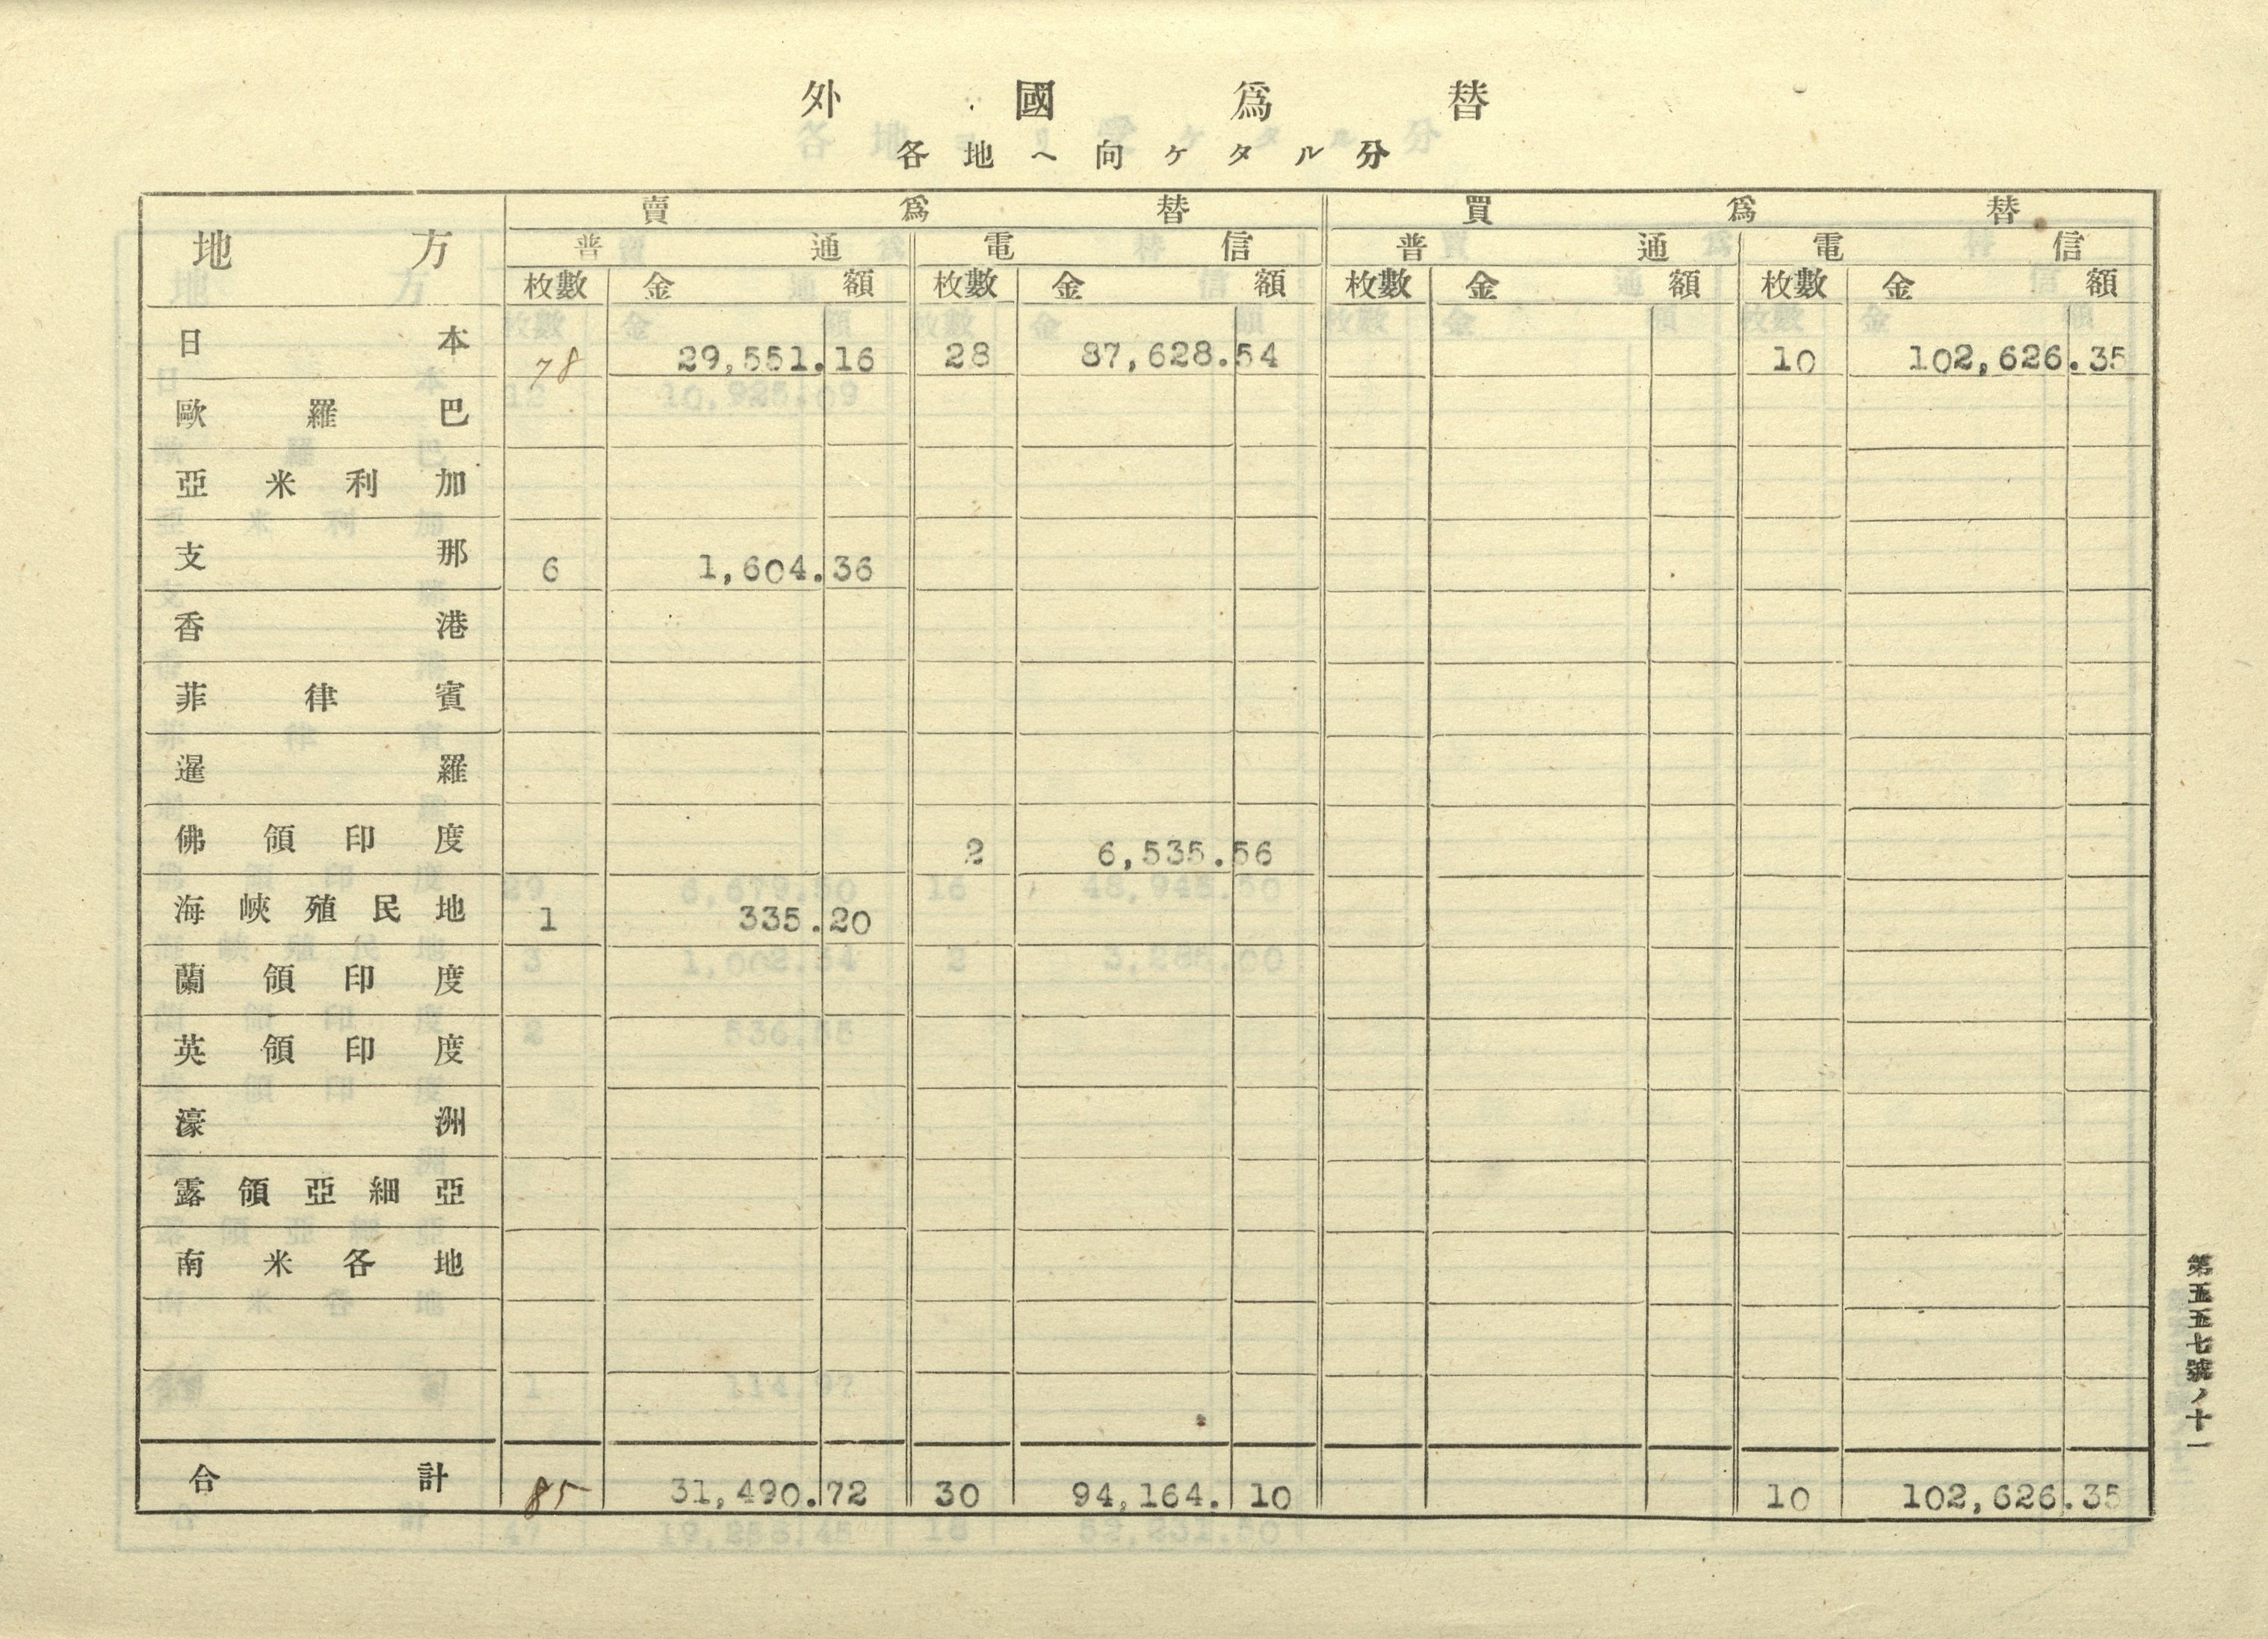 外國爲替
各地ヘ向ケタル分
地方 賣爲替 買爲替
普通 電信 普通 電信
枚數 金額 枚數 金額 枚數 金額 枚數 金額
日本 78 29,551.16 28 87,628.54 10 102,626.35
歐羅巴
亞米利加
支那 6 1,604.36
香港
菲律賓
暹羅
佛領印度 2 6,535.56
海峽殖民地 1 335.20
蘭領印度
英領印度
濠洲
露領亞細亞
南米各地
合計 85 31,490.72 30 94,164.10 10 102,626.35
第五五七號ノ十一